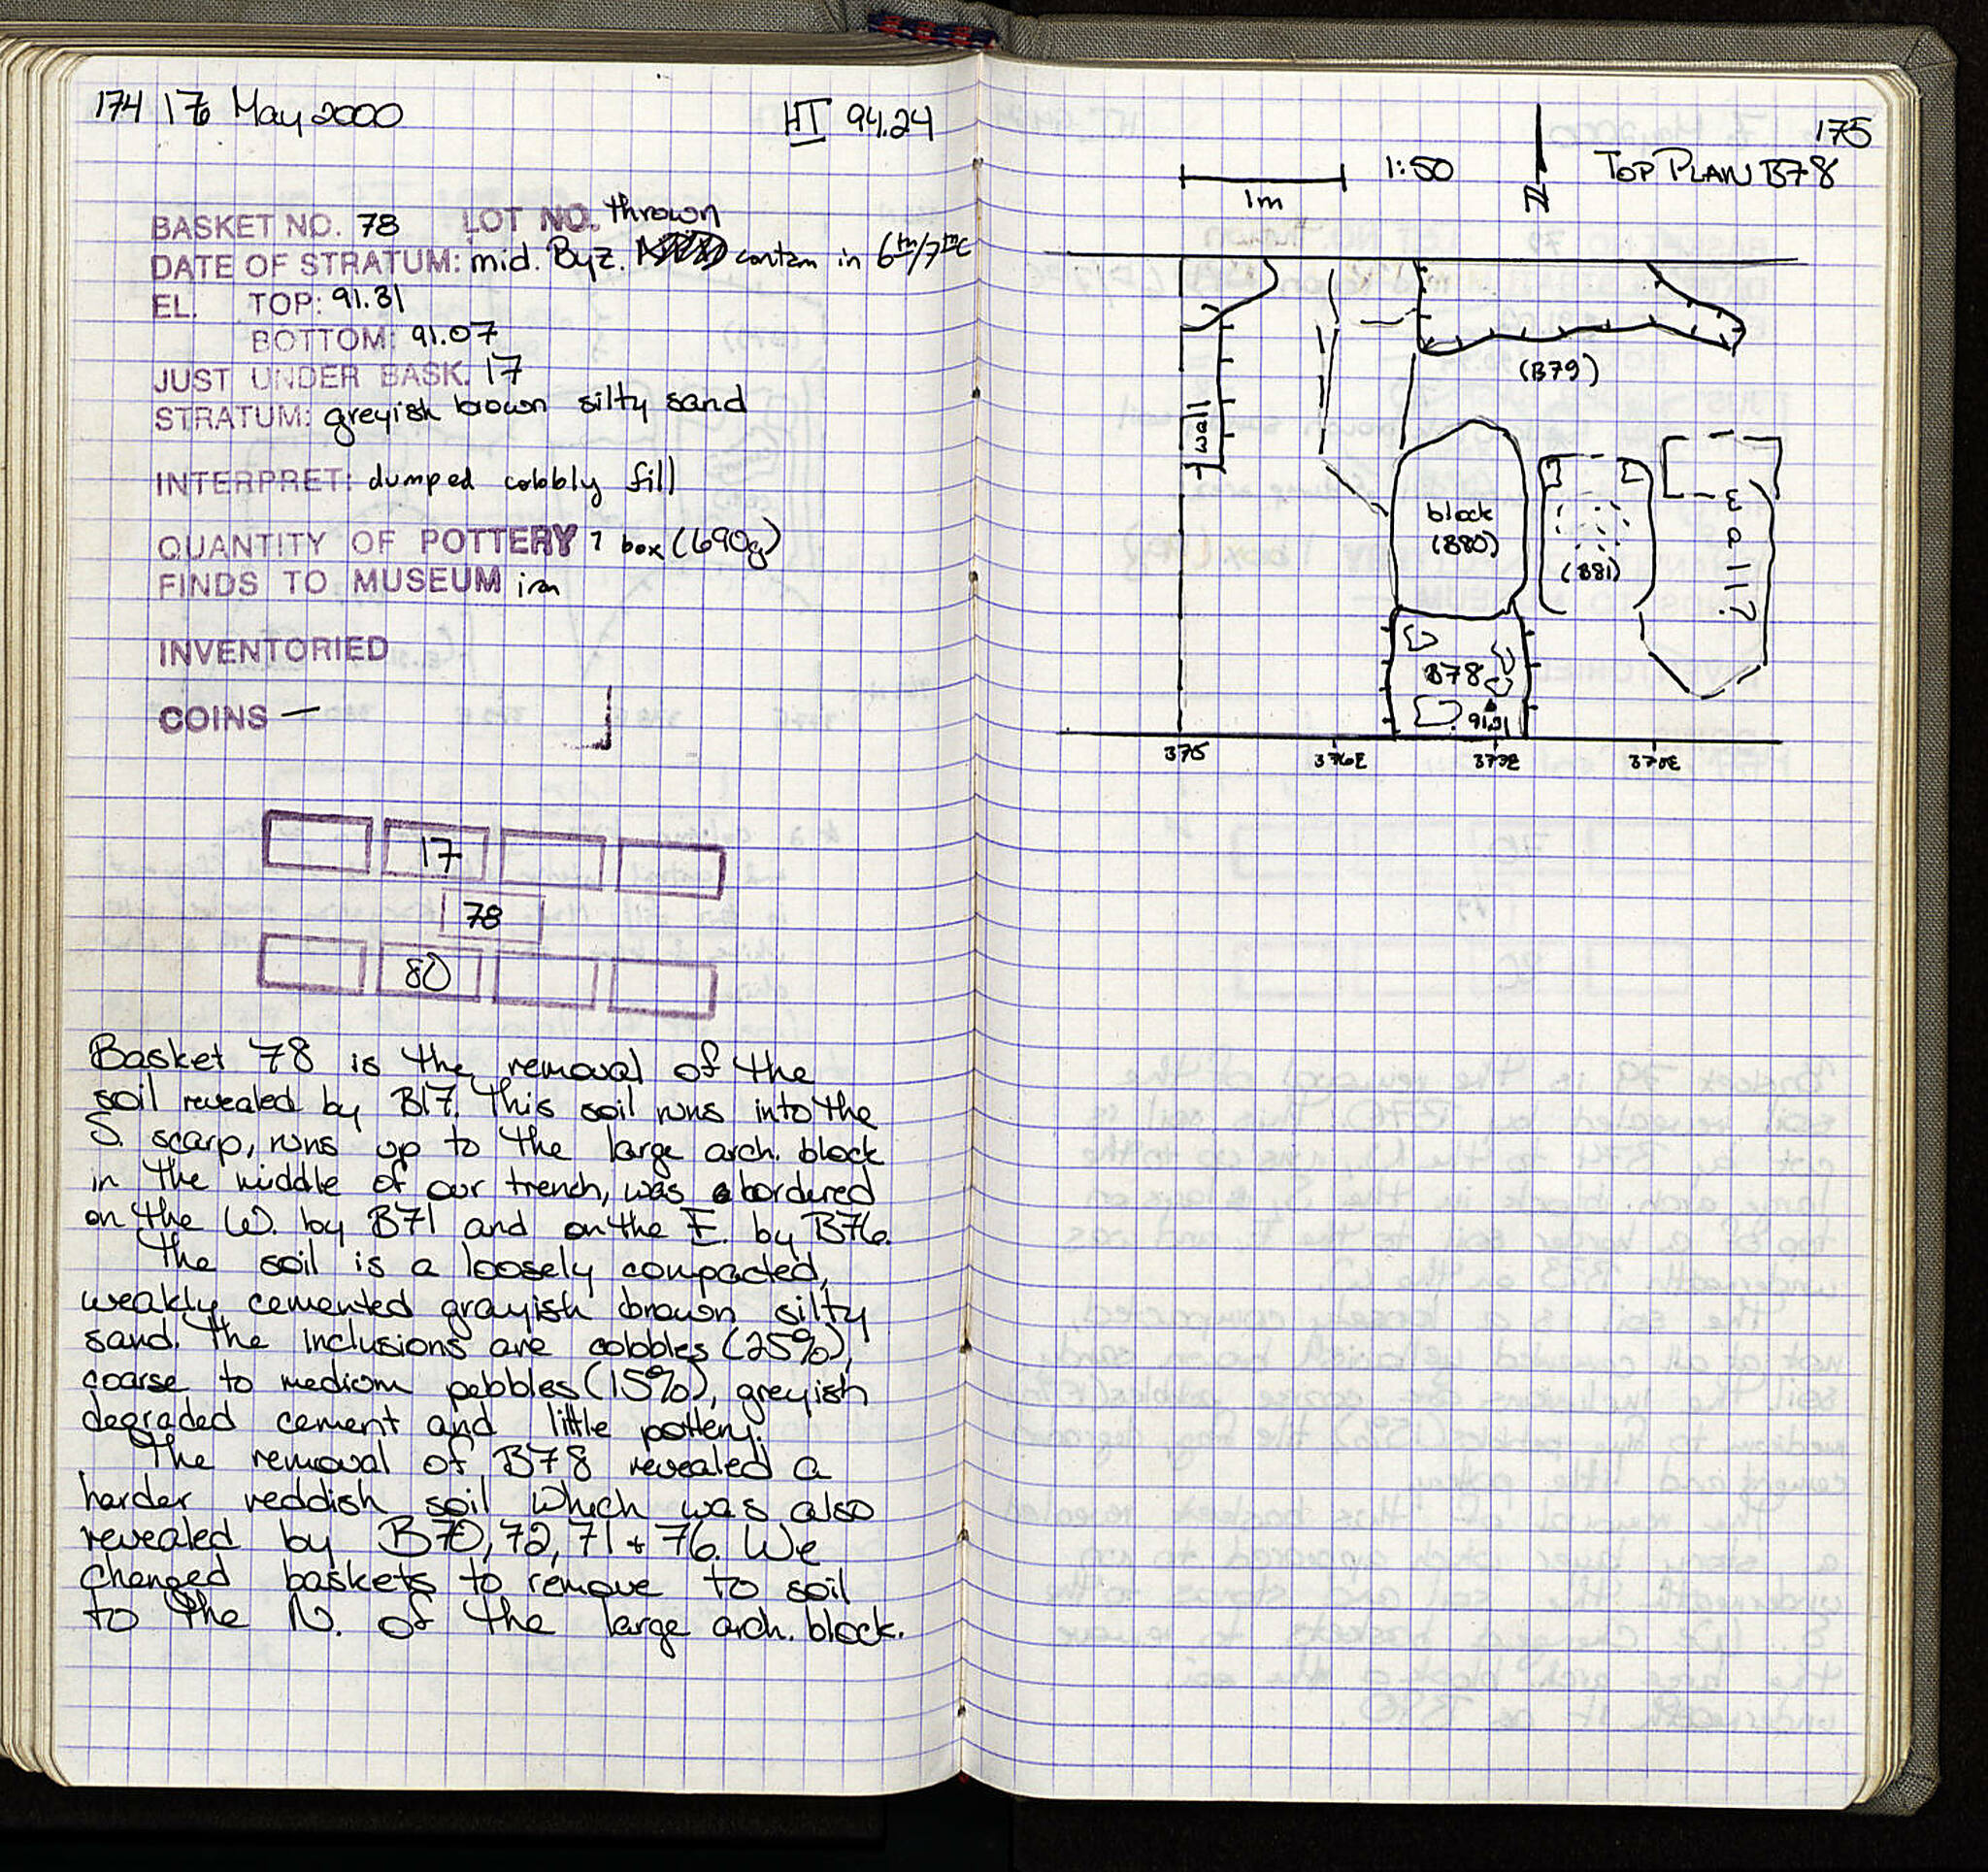 174 17 May 2000
HT 94.24
BASKET NO. 78 LOT NO. thrown
DATE OF STRATUM: mid. Byz. contam in 6th/7th c
EL. TOP: 91.31
BOTTOM: 91.07
JUST UNDER BASK. 17
STRATUM: greyish brown silty sand
INTERPRET: dumped cobbly fill
QUANTITY OF POTTERY 1 box (690g)
FINDS TO MUSEUM iron
INVENTORIED
COINS —
17
78
80
Basket 78 is the removal of the
soil revealed by B17. This soil runs into the
S. scarp, runs up to the large arch. block
in the middle of our trench, was bordered
on the W. by B71 and on the E. by B76.
The soil is a loosely compacted,
weakly cemented grayish brown silty
sand. The inclusions are cobbles (25%),
coarse to medium pebbles (15%), greyish
degraded cement and little pottery.
The removal of B78 revealed a
harder reddish soil which was also
revealed by B70, 72, 71 + 76. We
changed baskets to remove to soil
to the N. of the large arch. block.
175
1:50
TOP PLAN B78
1m
N
(B79)
wall
block
(B80)
(B81)
wall?
B78
91.31
375
376E
377E
378E